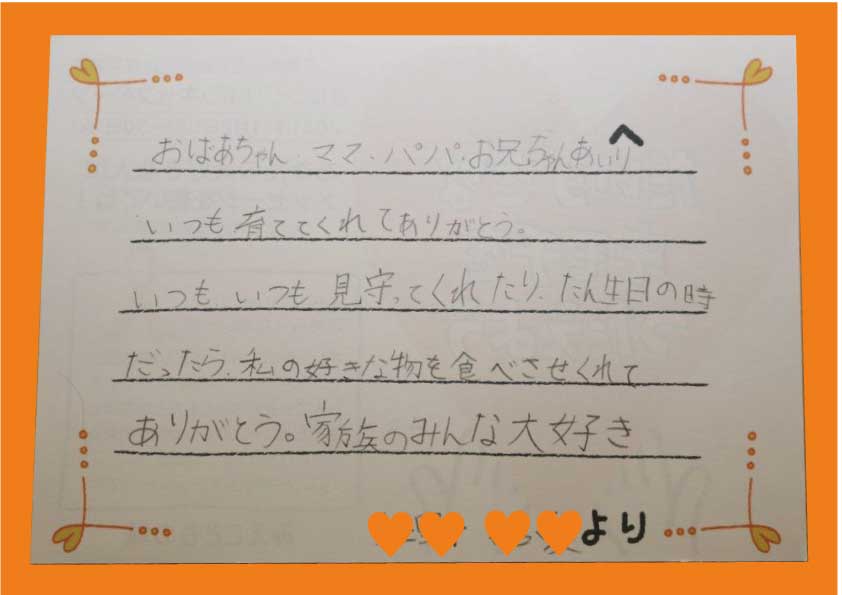 おばあちゃん、ママ、パパ、お兄ちゃんあいりへ
いつも育ててくれてありがとう。
いつも、いつも、見守ってくれたり、たん生日の時
だったら、私の好きな物を食べさせくれて
ありがとう。家族のみんな大好き
より